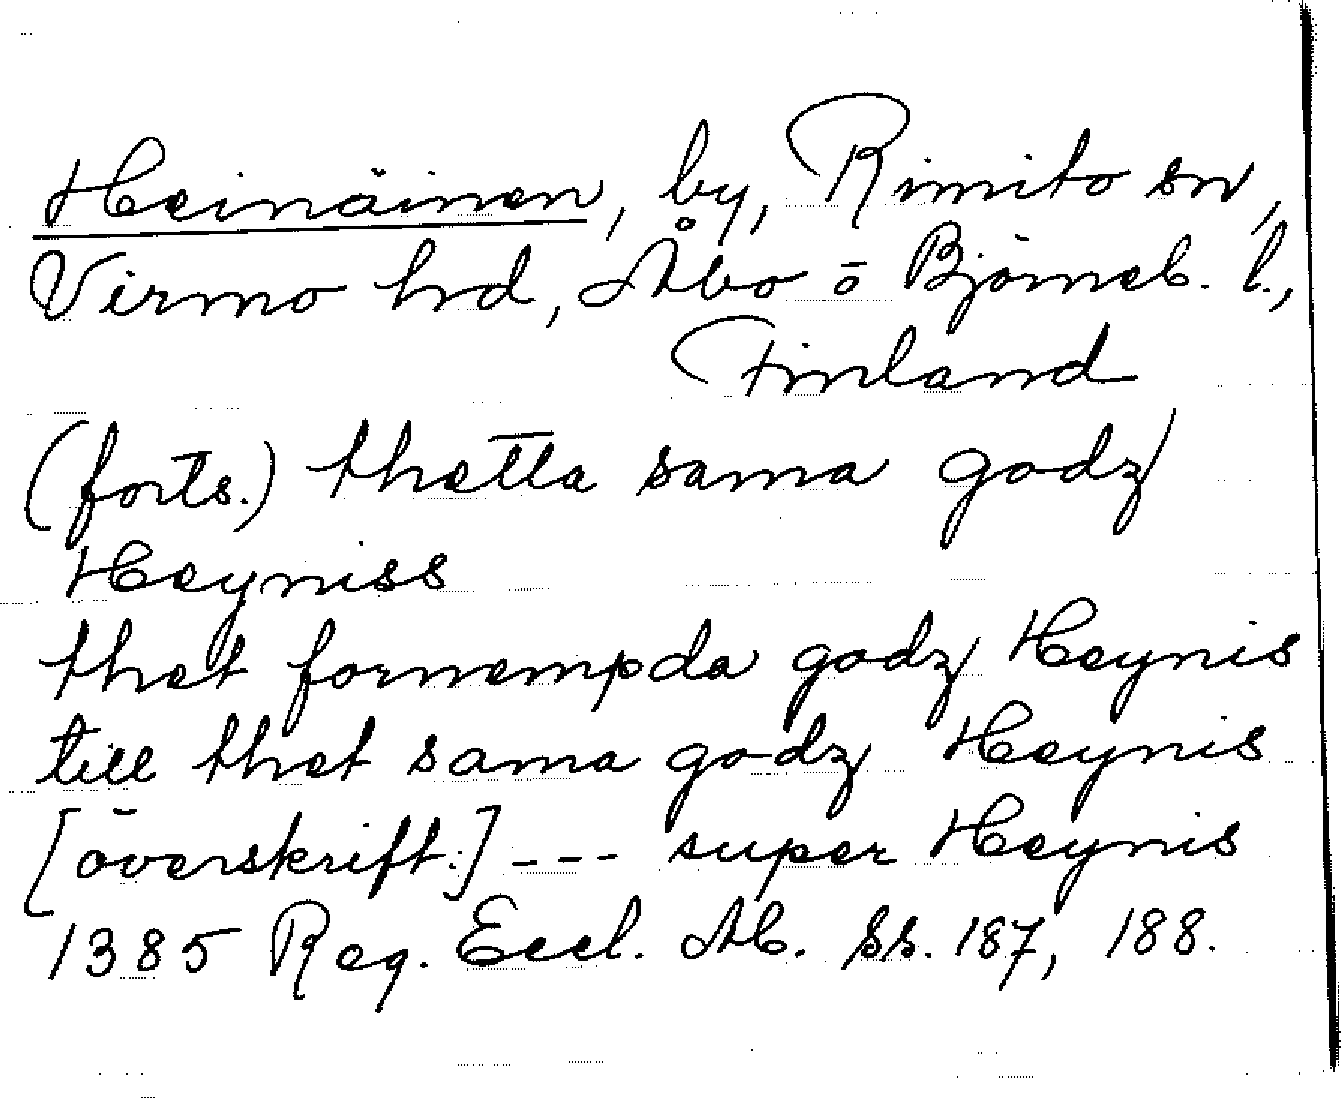 Heinäinen, by, Rimito sn,
Virmo hrd, Åbo ō Björneb. l.,
Finland
(forts.) thetta sama godz
Heyniss
thet fornempda godz Heynis
till thet sama godz Heynis
[överskrift:] --- super Heynis
1385 Reg. Eccl. Ab. ss. 187, 188.